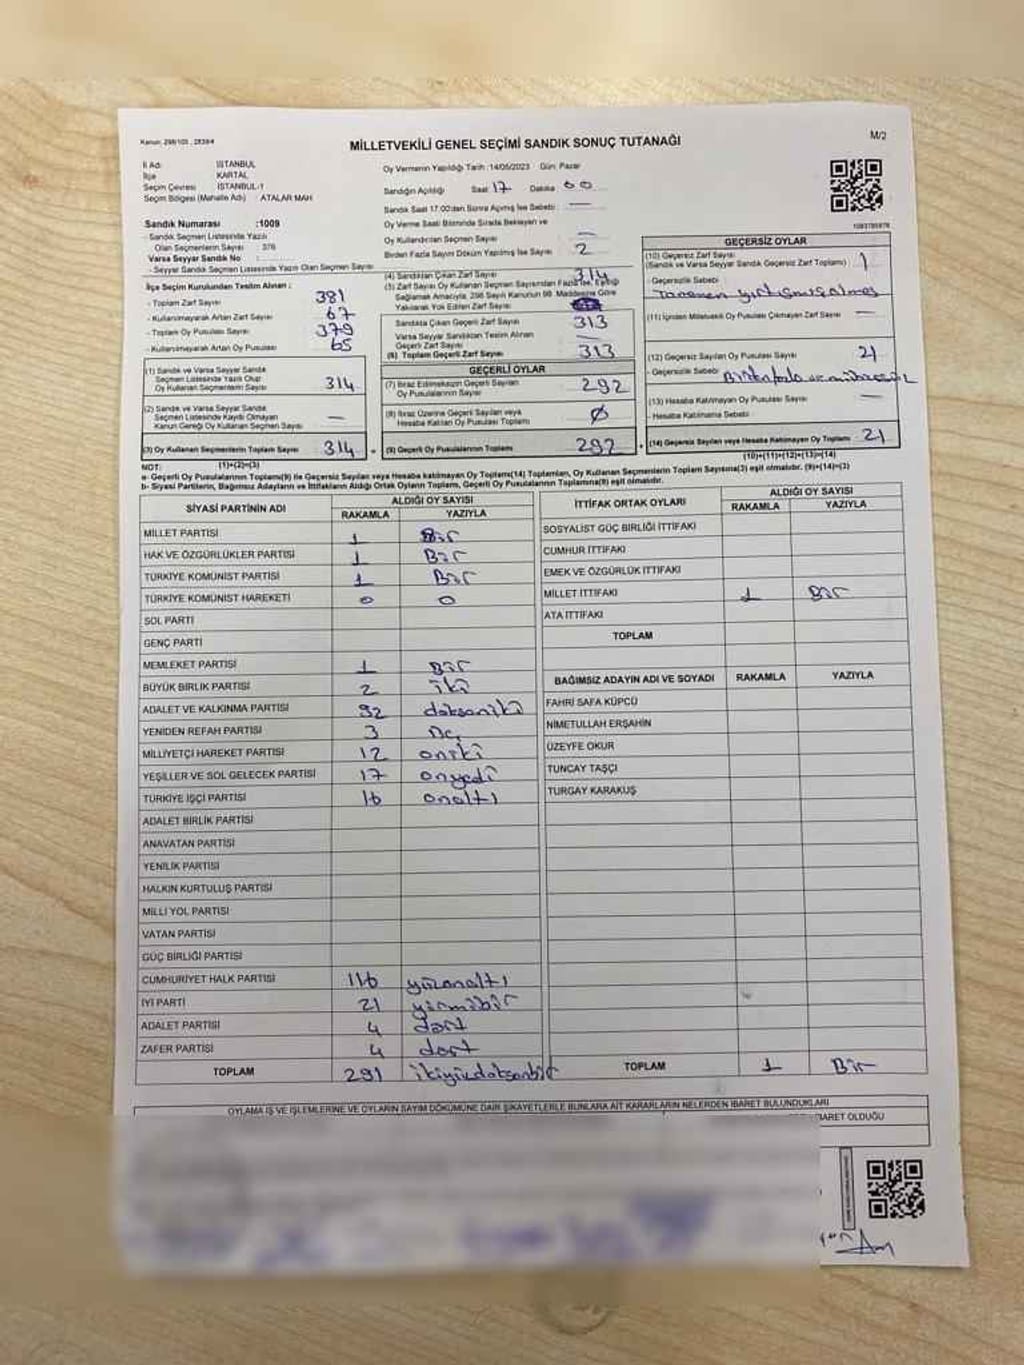 Kanun: 298/105, 2839/4
MİLLETVEKİLİ GENEL SEÇİMİ SANDIK SONUÇ TUTANAĞI
M/2
İl Adı : İSTANBUL
İlçe : KARTAL
Seçim Çevresi : İSTANBUL-1
Seçim Bölgesi (Mahalle Adı) : ATALAR MAH
Oy Vermenin Yapıldığı Tarih :14/05/2023 Gün: Pazar
Sandığın Açıldığı Saat 17 Dakika 00
Sandık Saat 17:00'dan Sonra Açılmış İse Sebebi: —
Oy Verme Saati Bitiminde Sırada Bekleyen ve
Oy Kullandırılan Seçmen Sayısı —
Birden Fazla Sayım Döküm Yapılmış İse Sayısı : 2
Sandık Numarası :1009
- Sandık Seçmen Listesinde Yazılı
Olan Seçmenlerin Sayısı : 376
Varsa Seyyar Sandık No :
- Seyyar Sandık Seçmen Listesinde Yazılı Olan Seçmen Sayısı
İlçe Seçim Kurulundan Teslim Alınan :
- Toplam Zarf Sayısı 381
- Kullanılmayarak Artan Zarf Sayısı 67
- Toplam Oy Pusulası Sayısı 379
- Kullanılmayarak Artan Oy Pusulası 65
(1) Sandık ve Varsa Seyyar Sandık
Seçmen Listesinde Yazılı Olup
Oy Kullanan Seçmenlerin Sayısı 314
(2) Sandık ve Varsa Seyyar Sandık
Seçmen Listesinde Kaydı Olmayan
Kanun Gereği Oy Kullanan Seçmen Sayısı —
(3) Oy Kullanan Seçmenlerin Toplam Sayısı 314
(1)+(2)=(3)
(4) Sandıktan Çıkan Zarf Sayısı 314
(5) Zarf Sayısı Oy Kullanan Seçmen Sayısından Fazla İse, Eşitliği
Sağlamak Amacıyla, 298 Sayılı Kanunun 98. Maddesine Göre
Yakılarak Yok Edilen Zarf Sayısı
Sandıkta Çıkan Geçerli Zarf Sayısı 313
Varsa Seyyar Sandıktan Teslim Alınan
Geçerli Zarf Sayısı —
(6) Toplam Geçerli Zarf Sayısı 313
GEÇERLİ OYLAR
(7) İtiraz Edilmeksizin Geçerli Sayılan
Oy Pusulalarının Sayısı 292
(8) İtiraz Üzerine Geçerli Sayılan veya
Hesaba Katılan Oy Pusulaları Toplamı Ø
(9) Geçerli Oy Pusulalarının Toplamı 292
GEÇERSİZ OYLAR
(10) Geçersiz Zarf Sayısı
(Sandık ve Varsa Seyyar Sandık Geçersiz Zarf Toplamı) 1
- Geçersizlik Sebebi :
(11) İçinden Milletvekili Oy Pusulası Çıkmayan Zarf Sayısı —
(12) Geçersiz Sayılan Oy Pusulası Sayısı 21
- Geçersizlik Sebebi :
(13) Hesaba Katılmayan Oy Pusulası Sayısı —
- Hesaba Katılmama Sebebi :
(14) Geçersiz Sayılan veya Hesaba Katılmayan Oy Toplamı 21
(10)+(11)+(12)+(13)=(14)
NOT:
a- Geçerli Oy Pusulalarının Toplamı(9) ile Geçersiz Sayılan veya Hesaba katılmayan Oy Toplamı(14) Toplamları, Oy Kullanan Seçmenlerin Toplam Sayısına(3) eşit olmalıdır. (9)+(14)=(3)
b- Siyasi Partilerin, Bağımsız Adayların ve İttifakların Aldığı Ortak Oyların Toplamı, Geçerli Oy Pusulalarının Toplamına(9) eşit olmalıdır.
SİYASİ PARTİNİN ADI ALDIĞI OY SAYISI
RAKAMLA YAZIYLA
MİLLET PARTİSİ 1 Bir
HAK VE ÖZGÜRLÜKLER PARTİSİ 1 Bir
TÜRKİYE KOMÜNİST PARTİSİ 1 Bir
TÜRKİYE KOMÜNİST HAREKETİ 0 0
SOL PARTİ
GENÇ PARTİ
MEMLEKET PARTİSİ 1 Bir
BÜYÜK BİRLİK PARTİSİ 2 iki
ADALET VE KALKINMA PARTİSİ 92 doksaniki
YENİDEN REFAH PARTİSİ 3 Üç
MİLLİYETÇİ HAREKET PARTİSİ 12 oniki
YEŞİLLER VE SOL GELECEK PARTİSİ 17 onyedi
TÜRKİYE İŞÇİ PARTİSİ 16 onaltı
ADALET BİRLİK PARTİSİ
ANAVATAN PARTİSİ
YENİLİK PARTİSİ
HALKIN KURTULUŞ PARTİSİ
MİLLİ YOL PARTİSİ
VATAN PARTİSİ
GÜÇ BİRLİĞİ PARTİSİ
CUMHURİYET HALK PARTİSİ 116 yüzonaltı
İYİ PARTİ 21 yirmibir
ADALET PARTİSİ 4 dört
ZAFER PARTİSİ 4 dört
TOPLAM 291 ikiyüzdoksanbir
İTTİFAK ORTAK OYLARI ALDIĞI OY SAYISI
RAKAMLA YAZIYLA
SOSYALİST GÜÇ BİRLİĞİ İTTİFAKI
CUMHUR İTTİFAKI
EMEK VE ÖZGÜRLÜK İTTİFAKI
MİLLET İTTİFAKI 1 Bir
ATA İTTİFAKI
TOPLAM
BAĞIMSIZ ADAYIN ADI VE SOYADI RAKAMLA YAZIYLA
FAHRİ SAFA KÜPCÜ
NİMETULLAH ERŞAHİN
ÜZEYFE OKUR
TUNCAY TAŞÇI
TURGAY KARAKUŞ
TOPLAM 1 Bir
OYLAMA İŞ VE İŞLEMLERİNE VE OYLARIN SAYIM DÖKÜMÜNE DAİR ŞİKAYETLERLE BUNLARA AİT KARARLARIN NELERDEN İBARET BULUNDUKLARI
İBARET OLDUĞU